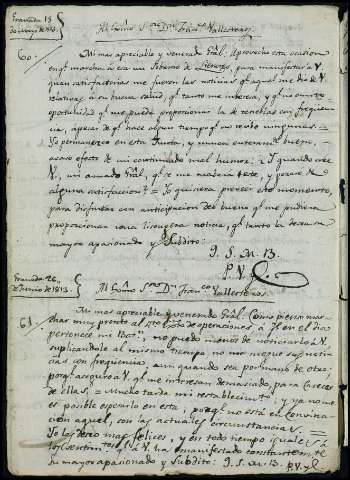 Granada 18
de Mayo de 1813.
Al Exmo. Sor. Dn. Franco. Vallesteros.
60.
Mi mas apreciable y venerado Gral. Aprovecho esta ocasion
en ql. marcha á esa un para manifestar á V.
quan satisfactorias me fueron las noticias ql. aquel me dió de V.
relativas á su buena salud, ql. tanto me interesa, y ql. no
oportunidad ql. me pueda proporcionar la de recibirlas con freqüen-
cia, apesar de ql. hace algun tiempo ql. no recibo ningunas.
Yo permanezco en esta Junta, y nunca enteramte. bueno,
acaso efecto de mi continuado mal humor: ¿Y quando cree
V., mi amado Gral., ql. se me acabará este, y tenga
alguna satisfaccion? = Yo quisiera preveer este momento,
para disfrutar con anticipacion del bueno ql. me pudiera
proporcionar una lisongera noticia, ql. tanto la desea su
mayor apasionado y Subdito:
J. S. M. B.
P. V.
Granada 26
de Junio de 1813.
Al Exmo. Sor. Dn. Franco. Vallesteros.
61.
Mi mas apreciable y venerado Gral.: Como pienso mar-
char muy pronto al Exto. de operaciones, á ql. en el dia
pertenece mi Bon., no puedo menos de noticiarlo á V.
suplicandole al mismo tiempo, no me niegue sus noti-
cias con freqüencia, aun quando sea por mano de otro;
porqe. aseguro á V. ql. me interesan demasiado, para carecer
de ellas, á mucho tarda mi restablecimto.; y ya no me
es posible esperarlo en esta; porqe. no está en convina-
cion aquel, con las actuales circunstancias. =
Yo los deseo mas felices, y en todo tiempo iguales á
los sentimtos. ql. á V. ha manifestado constantemte.
su mayor apasionado y Subdito: J. S. M. B. P. V.